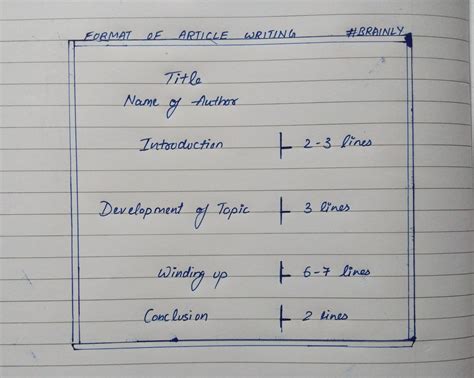 FORMAT OF ARTICLE WRITING #BRAINLY
Title
Name of Author
Introduction 2-3 lines
Development of Topic 3 lines
Winding up 6-7 lines
Conclusion 2 lines